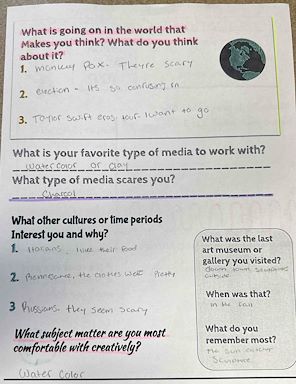 What is going on in the world that
Makes you think? What do you think
about it?
1. monkey Pox- Theyre scary
2. election - its so confusing rn
3. Taylor Swift eras tour I want to go
What is your favorite type of media to work with?
Water color or clay
What type of media scares you?
Charcol
What other cultures or time periods
Interest you and why?
1. Italians, I like their food
2. Rennesance, the clothes were Pretty
3 Russians, they seem scary
What subject matter are you most
comfortable with creatively?
Water Color
What was the last
art museum or
gallery you visited?
down town sculptures
outside
When was that?
in the fall
What do you
remember most?
The sun catcher
Sculpture